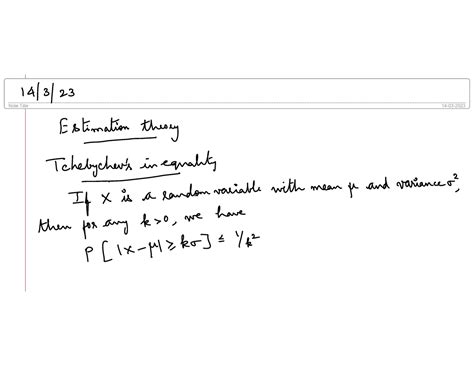 14/3/23
Note Title
14-03-2023
Estimation theory
Tchebychev's inequality
If X is a random variable with mean μ and variance σ²,
then for any k>0, we have
P[|X-μ| ≥ kσ] ≤ 1/k²